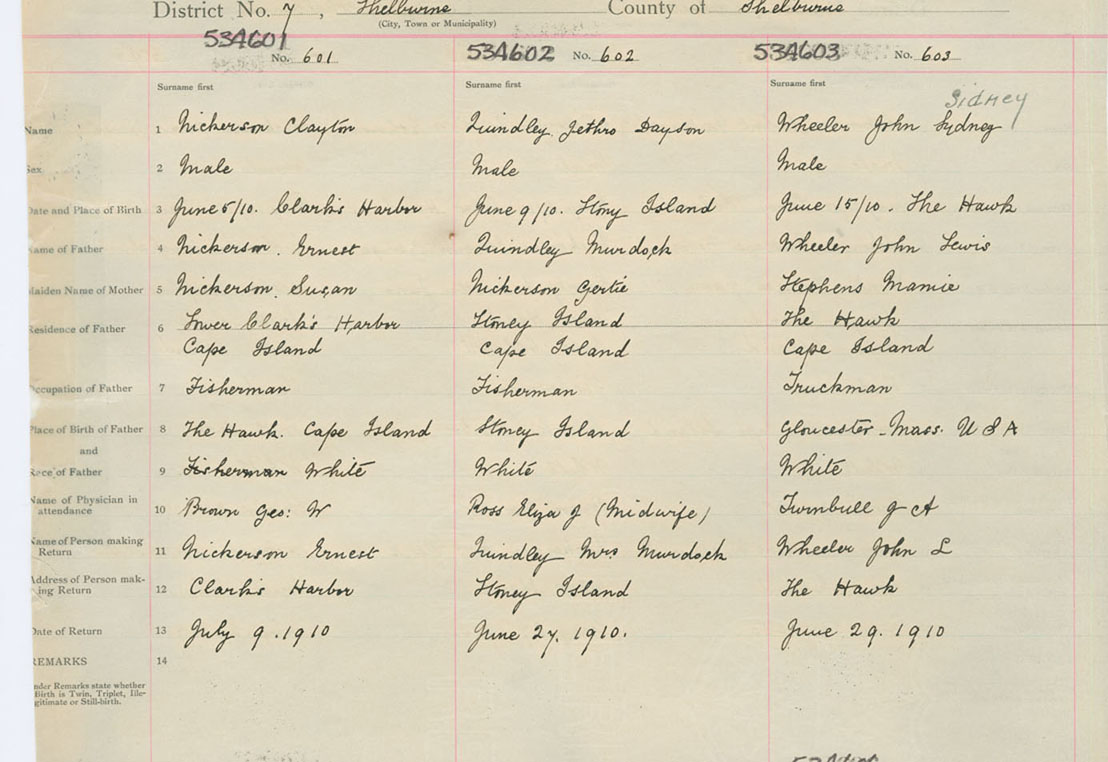 District No. 7, Shelburne County of Shelburne
(City, Town or Municipality)
53A601 53A602 53A603
No. 601 No. 602 No. 603
Surname first Surname first Surname first
Sidney
Name 1 Nickerson Clayton Quindley Jethro Dayson Wheeler John Sydney
Sex 2 Male Male Male
Date and Place of Birth 3 June 5/10. Clark's Harbor June 9/10. Stony Island June 15/10. The Hawk
Name of Father 4 Nickerson. Ernest Quindley Murdock Wheeler John Lewis
Maiden Name of Mother 5 Nickerson. Susan Nickerson Gertie Stephens Mamie
Residence of Father 6 Lower Clark's Harbor Stoney Island The Hawk
Cape Island Cape Island Cape Island
Occupation of Father 7 Fisherman Fisherman Truckman
Place of Birth of Father 8 The Hawk. Cape Island Stoney Island Gloucester - Mass. U S A
and
Race of Father 9 Fisherman White White White
Name of Physician in
attendance 10 Brown Geo: W Ross Eliza J (Midwife) Turnbull J A
Name of Person making
Return 11 Nickerson Ernest Quindley Mrs Murdock Wheeler John L
Address of Person mak-
ing Return 12 Clark's Harbor Stoney Island The Hawk
Date of Return 13 July 9. 1910 June 27. 1910. June 29. 1910
REMARKS 14
Under Remarks state whether
Birth is Twin, Triplet, Ille-
gitimate or Still-birth.